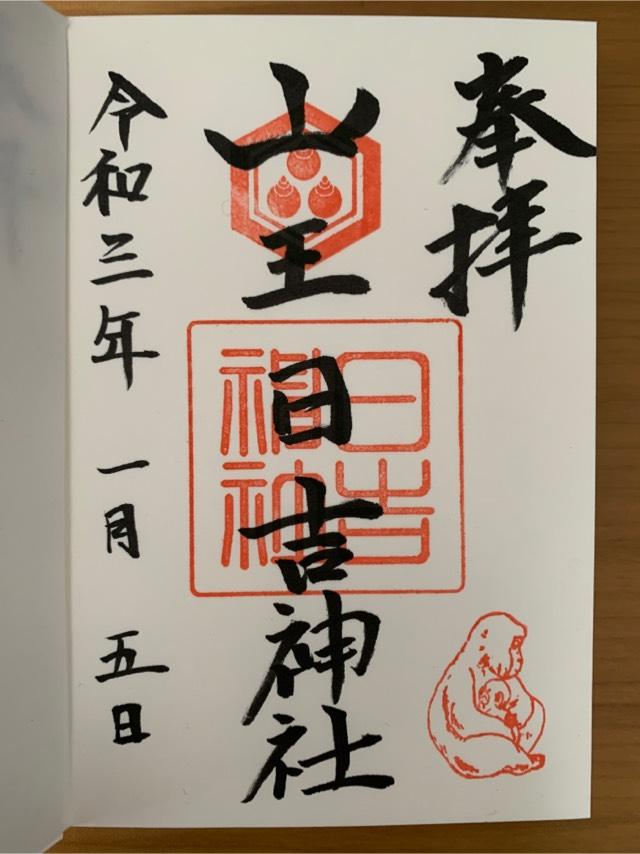 奉拝
山王
日吉神社
日吉
神社
令和三年 一月 五日